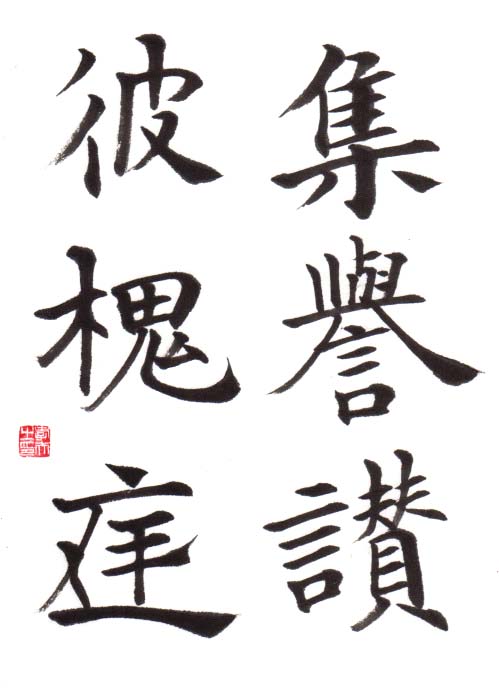 集譽讃
彼槐庭